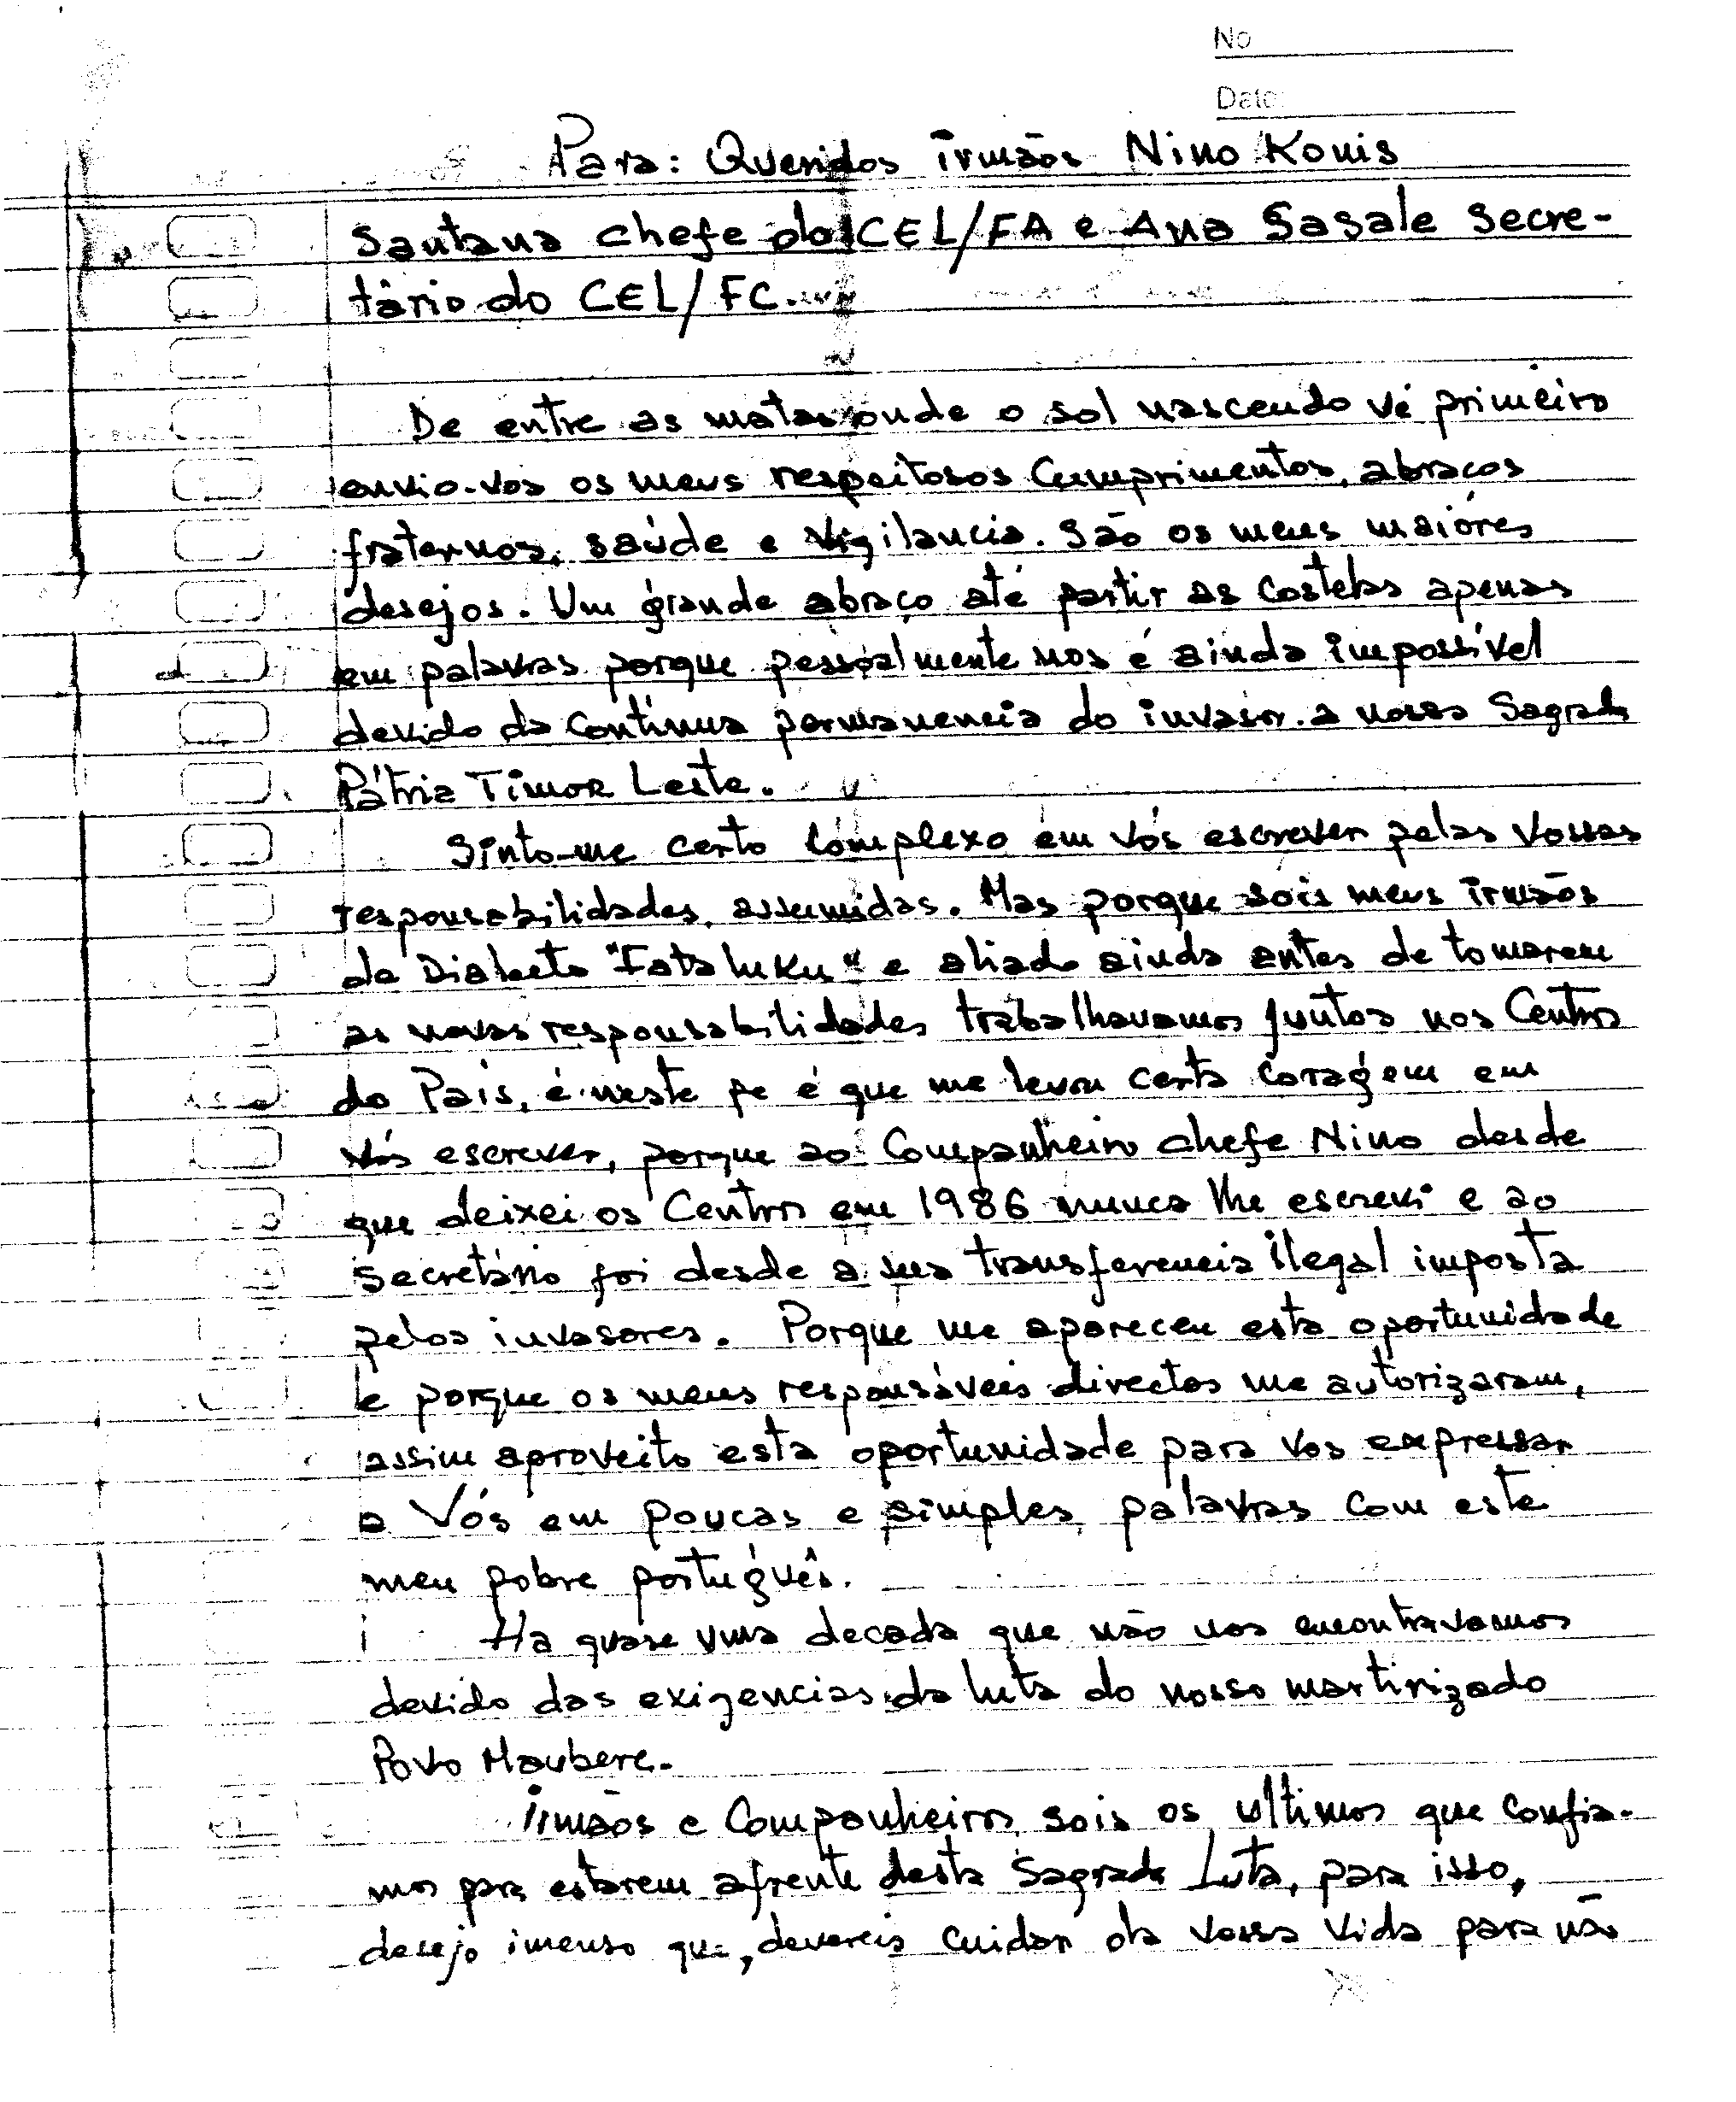 No
Date
Para: Queridos irmãos Nino Konis
Santana chefe do CEL/FA e Ana Sasale Secre-
tário do CEL/FC.
De entre as matas onde o sol nascendo vé primeiro
envio-vos os meus respeitosos Cumprimentos, abraços
fraternos, saúde e vigilancia. São os meus maióres
desejos. Um grande abraço até partir as Costelas apenas
em palavras porque pessoalmente nos é ainda impossível
devido da Contínua permanencia do invasor a nossa Sagrada
Pátria Timor Leste.
Sinto-me certo Complexo em vós escrever pelas vossas
responsabilidades, assumidas. Mas porque sois meus irmãos
de Dialecto "Fataluku" e aliado ainda antes de tomarem
as novas responsabilidades trabalhavamos juntos nos Centros
do País, é neste pe é que me levou certa Coragem em
vós escrever, porque ao Companheiro chefe Nino desde
que deixei os Centros em 1986 nunca lhe escrevi e ao
Secretário foi desde a sua transferencia ilegal imposta
pelos invasores. Porque me apareceu esta oportunidade
e porque os meus responsáveis directos me autorizaram,
assim aproveito esta oportunidade para vos expressar
a Vós em poucas e simples, palavras com este
meu pobre português.
Ha quase uma decada que não nos encontravamos
devido das exigencias da luta do nosso martirizado
Povo Maubere.
Irmãos e Companheiros, sois os ultimos que confia-
mos para estarem afrente desta Sagrada Luta, para isso,
desejo imenso que, devereis Cuidar da vossa vida para não